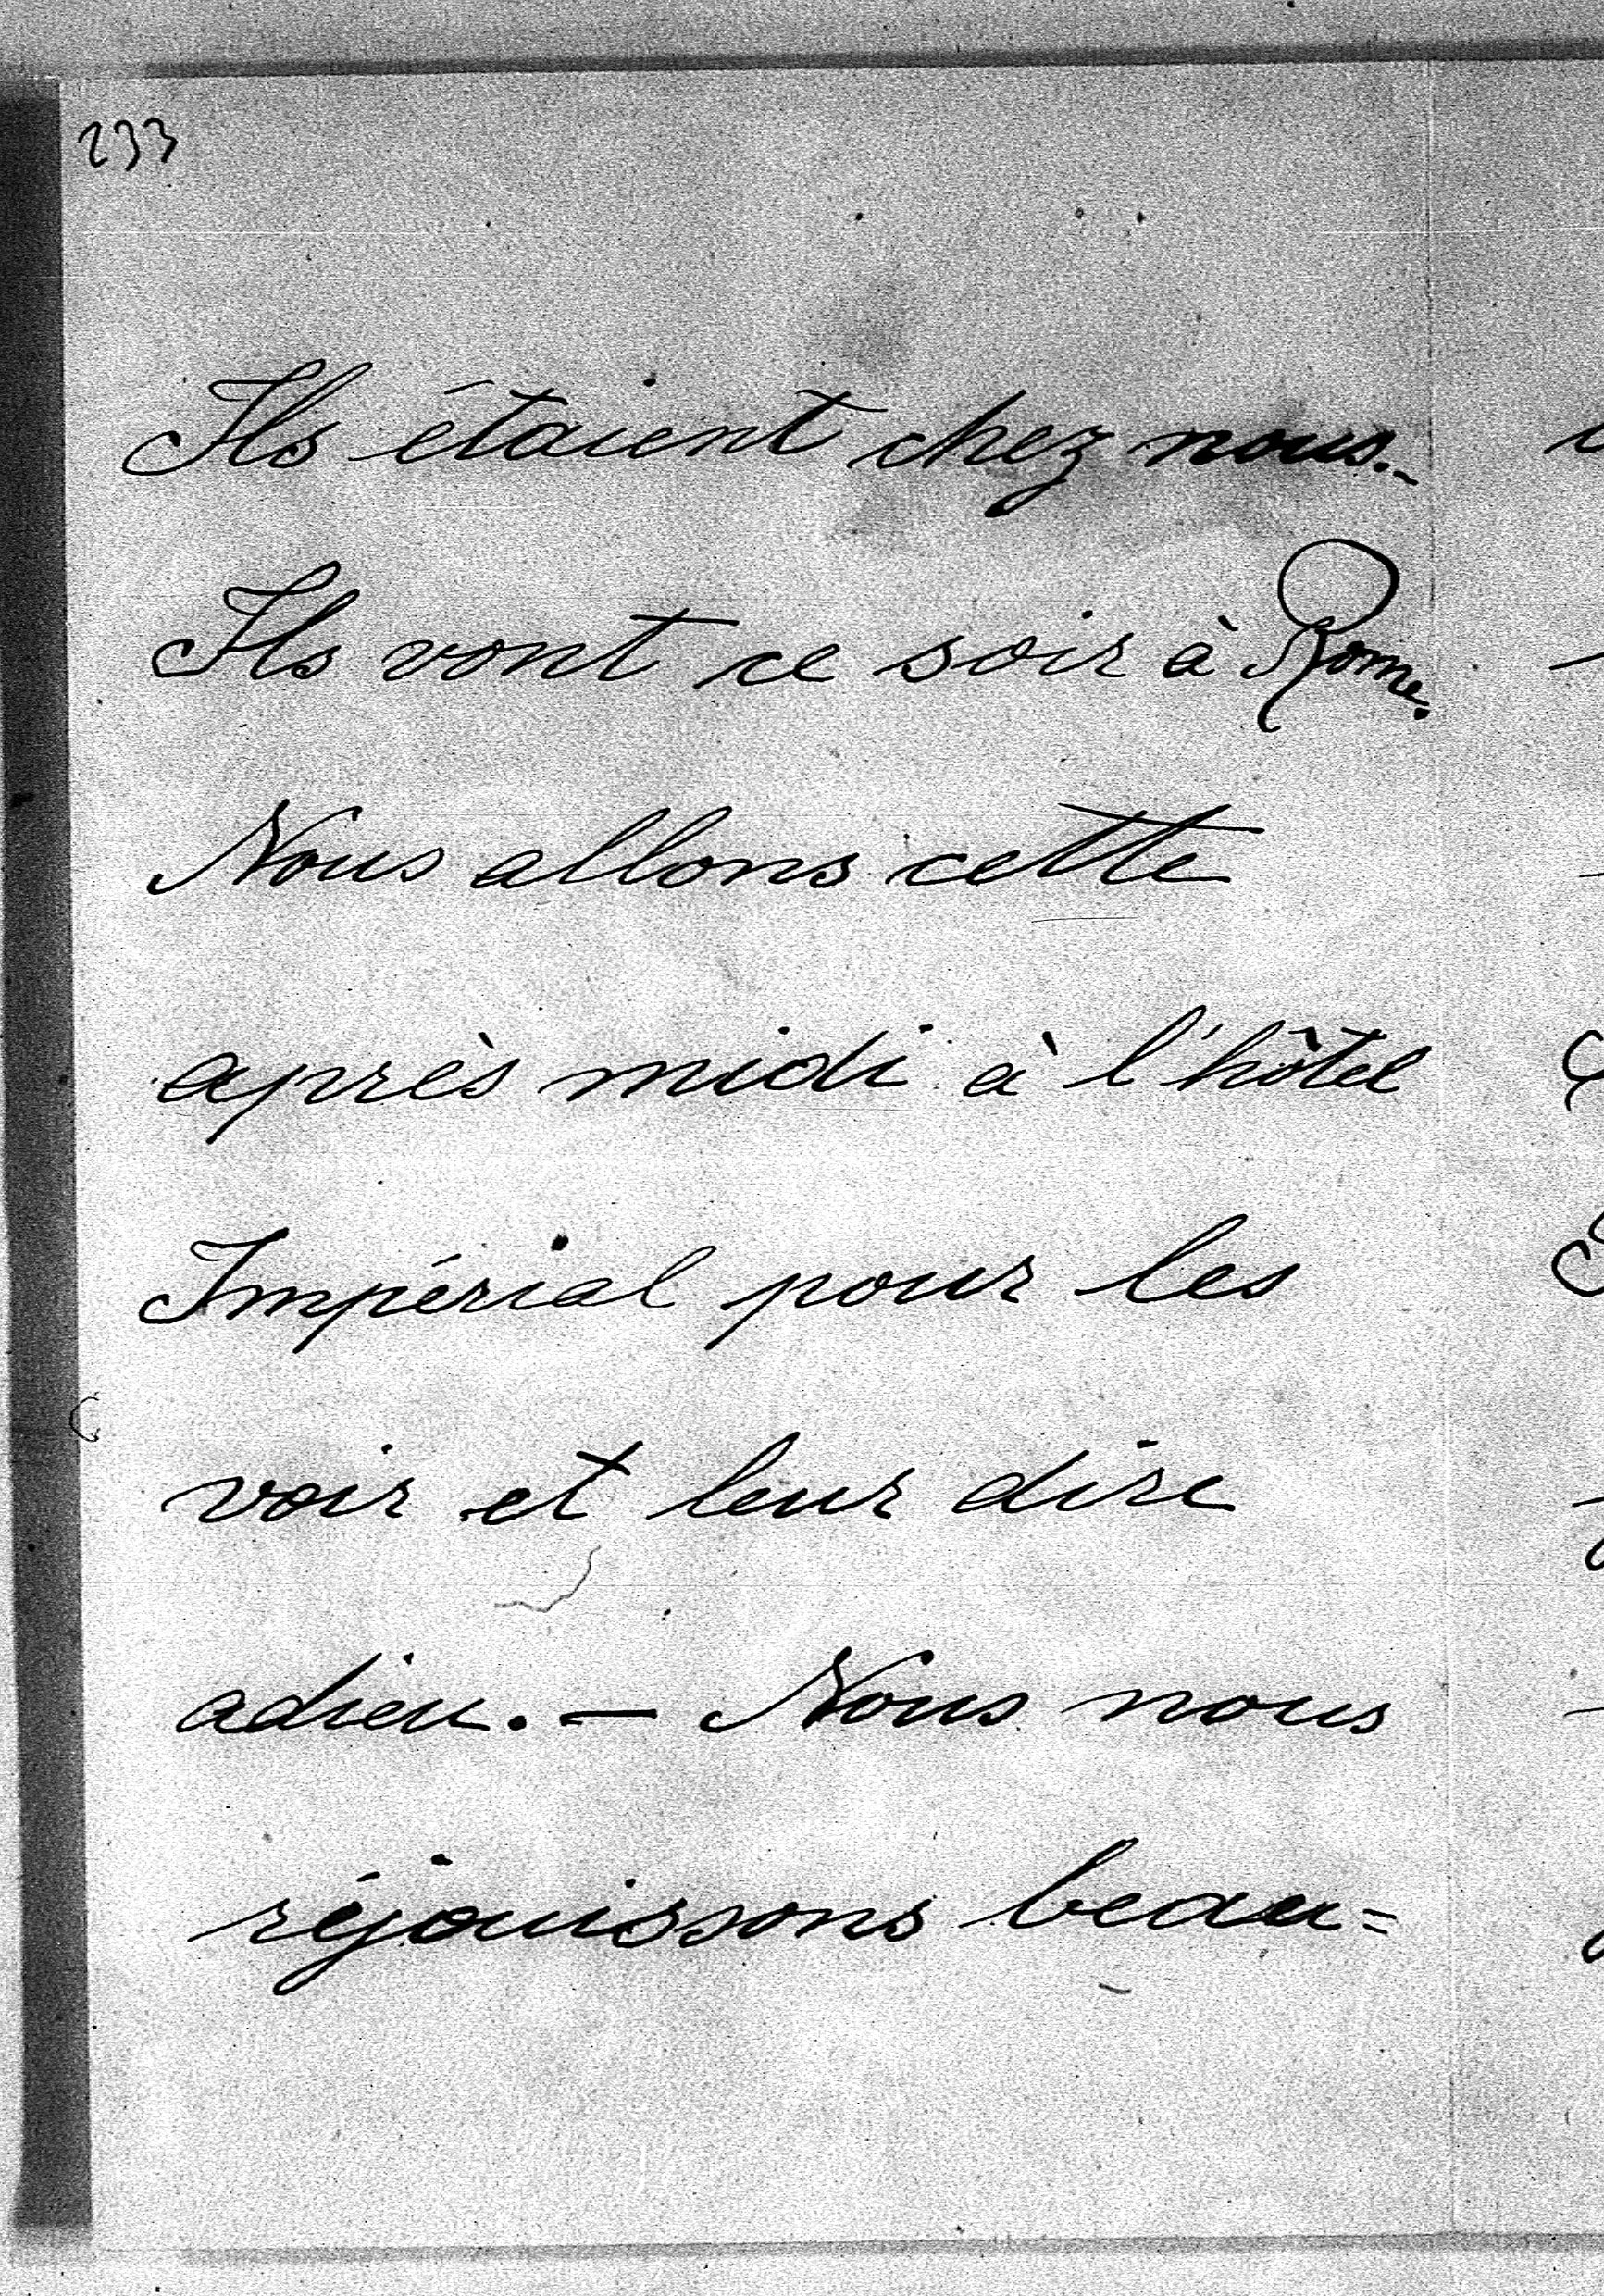 233
Ils étaient chez nous.-
Ils vont ce soir à Rome.
Nous allons cette
après midi à l'hôtel
Impérial pour les
voir et leur dire
adieu. — Nous nous
réjouissons beau=